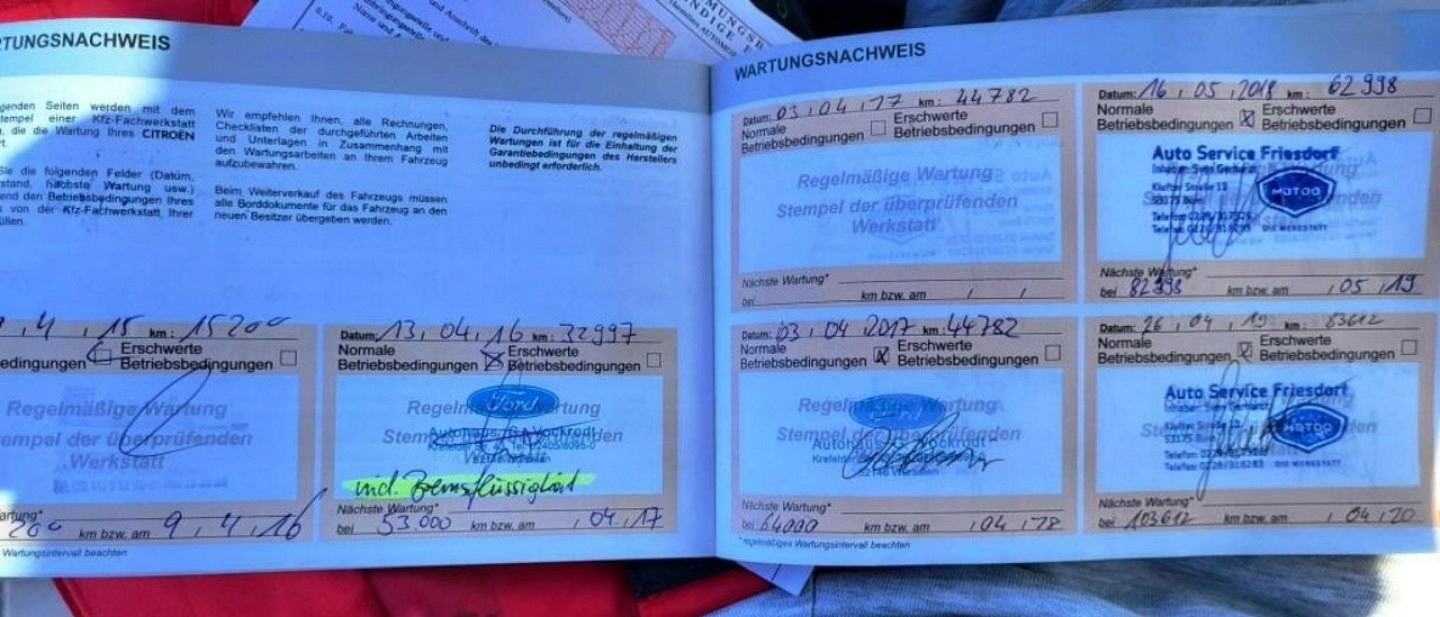 RTUNGSNACHWEIS
genden Seiten werden mit dem
tempel einer Kfz-Fachwerkstatt
, die die Wartung Ihres CITROËN
t.
Sie die folgenden Felder (Datum,
stand, nächste Wartung usw.)
end den Betriebsbedingungen Ihres
s von der Kfz-Fachwerkstatt Ihrer
üllen.
Wir empfehlen Ihnen, alle Rechnungen,
Checklisten der durchgeführten Arbeiten
und Unterlagen in Zusammenhang mit
den Wartungsarbeiten an Ihrem Fahrzeug
aufzubewahren.
Beim Weiterverkauf des Fahrzeugs müssen
alle Borddokumente für das Fahrzeug an den
neuen Besitzer übergeben werden.
Die Durchführung der regelmäßigen
Wartungen ist für die Einhaltung der
Garantiebedingungen des Herstellers
unbedingt erforderlich.
4, 15 km: 15200
edingungen Erschwerte
Betriebsbedingungen
Regelmäßige Wartung
tempel der überprüfenden
Werkstatt
artung*
200 km bzw. am 9, 4, 16
Wartungsintervall beachten
Datum: 13, 04, 16 km: 32997
Normale Erschwerte
Betriebsbedingungen Betriebsbedingungen
Ford
Autohaus G. Vockrodt
incl. Bremsflüssigkeit
Nächste Wartung*
bei 53.000 km bzw. am , 04, 17
WARTUNGSNACHWEIS
Datum: 03, 04, 17 km: 44782
Normale Erschwerte
Betriebsbedingungen Betriebsbedingungen
Regelmäßige Wartung
Stempel der überprüfenden
Werkstatt
Nächste Wartung*
bei km bzw. am / /
Datum: 16, 05, 2018 km: 62998
Normale Erschwerte
Betriebsbedingungen Betriebsbedingungen
Auto Service Friesdorf
Inhaber Sven Gerhardt
Klufter Straße 13
53175 Bonn
MOTOO
DIE WERKSTATT
Nächste Wartung*
bei 82998 km bzw. am , 05, 19
Datum: 03, 04, 2017 km: 44782
Normale Erschwerte
Betriebsbedingungen Betriebsbedingungen
Regelmäßige Wartung
Autohaus G. Vockrodt
Nächste Wartung*
bei 64000 km bzw. am , 04, 18
*regelmäßiges Wartungsintervall beachten
Datum: 26, 04, 19 km: 83612
Normale Erschwerte
Betriebsbedingungen Betriebsbedingungen
Auto Service Friesdorf
Inhaber Sven Gerhardt
MOTOO
Telefax 0228/318283
DIE WERKSTATT
Nächste Wartung*
bei 103612 km bzw. am , 04, 20